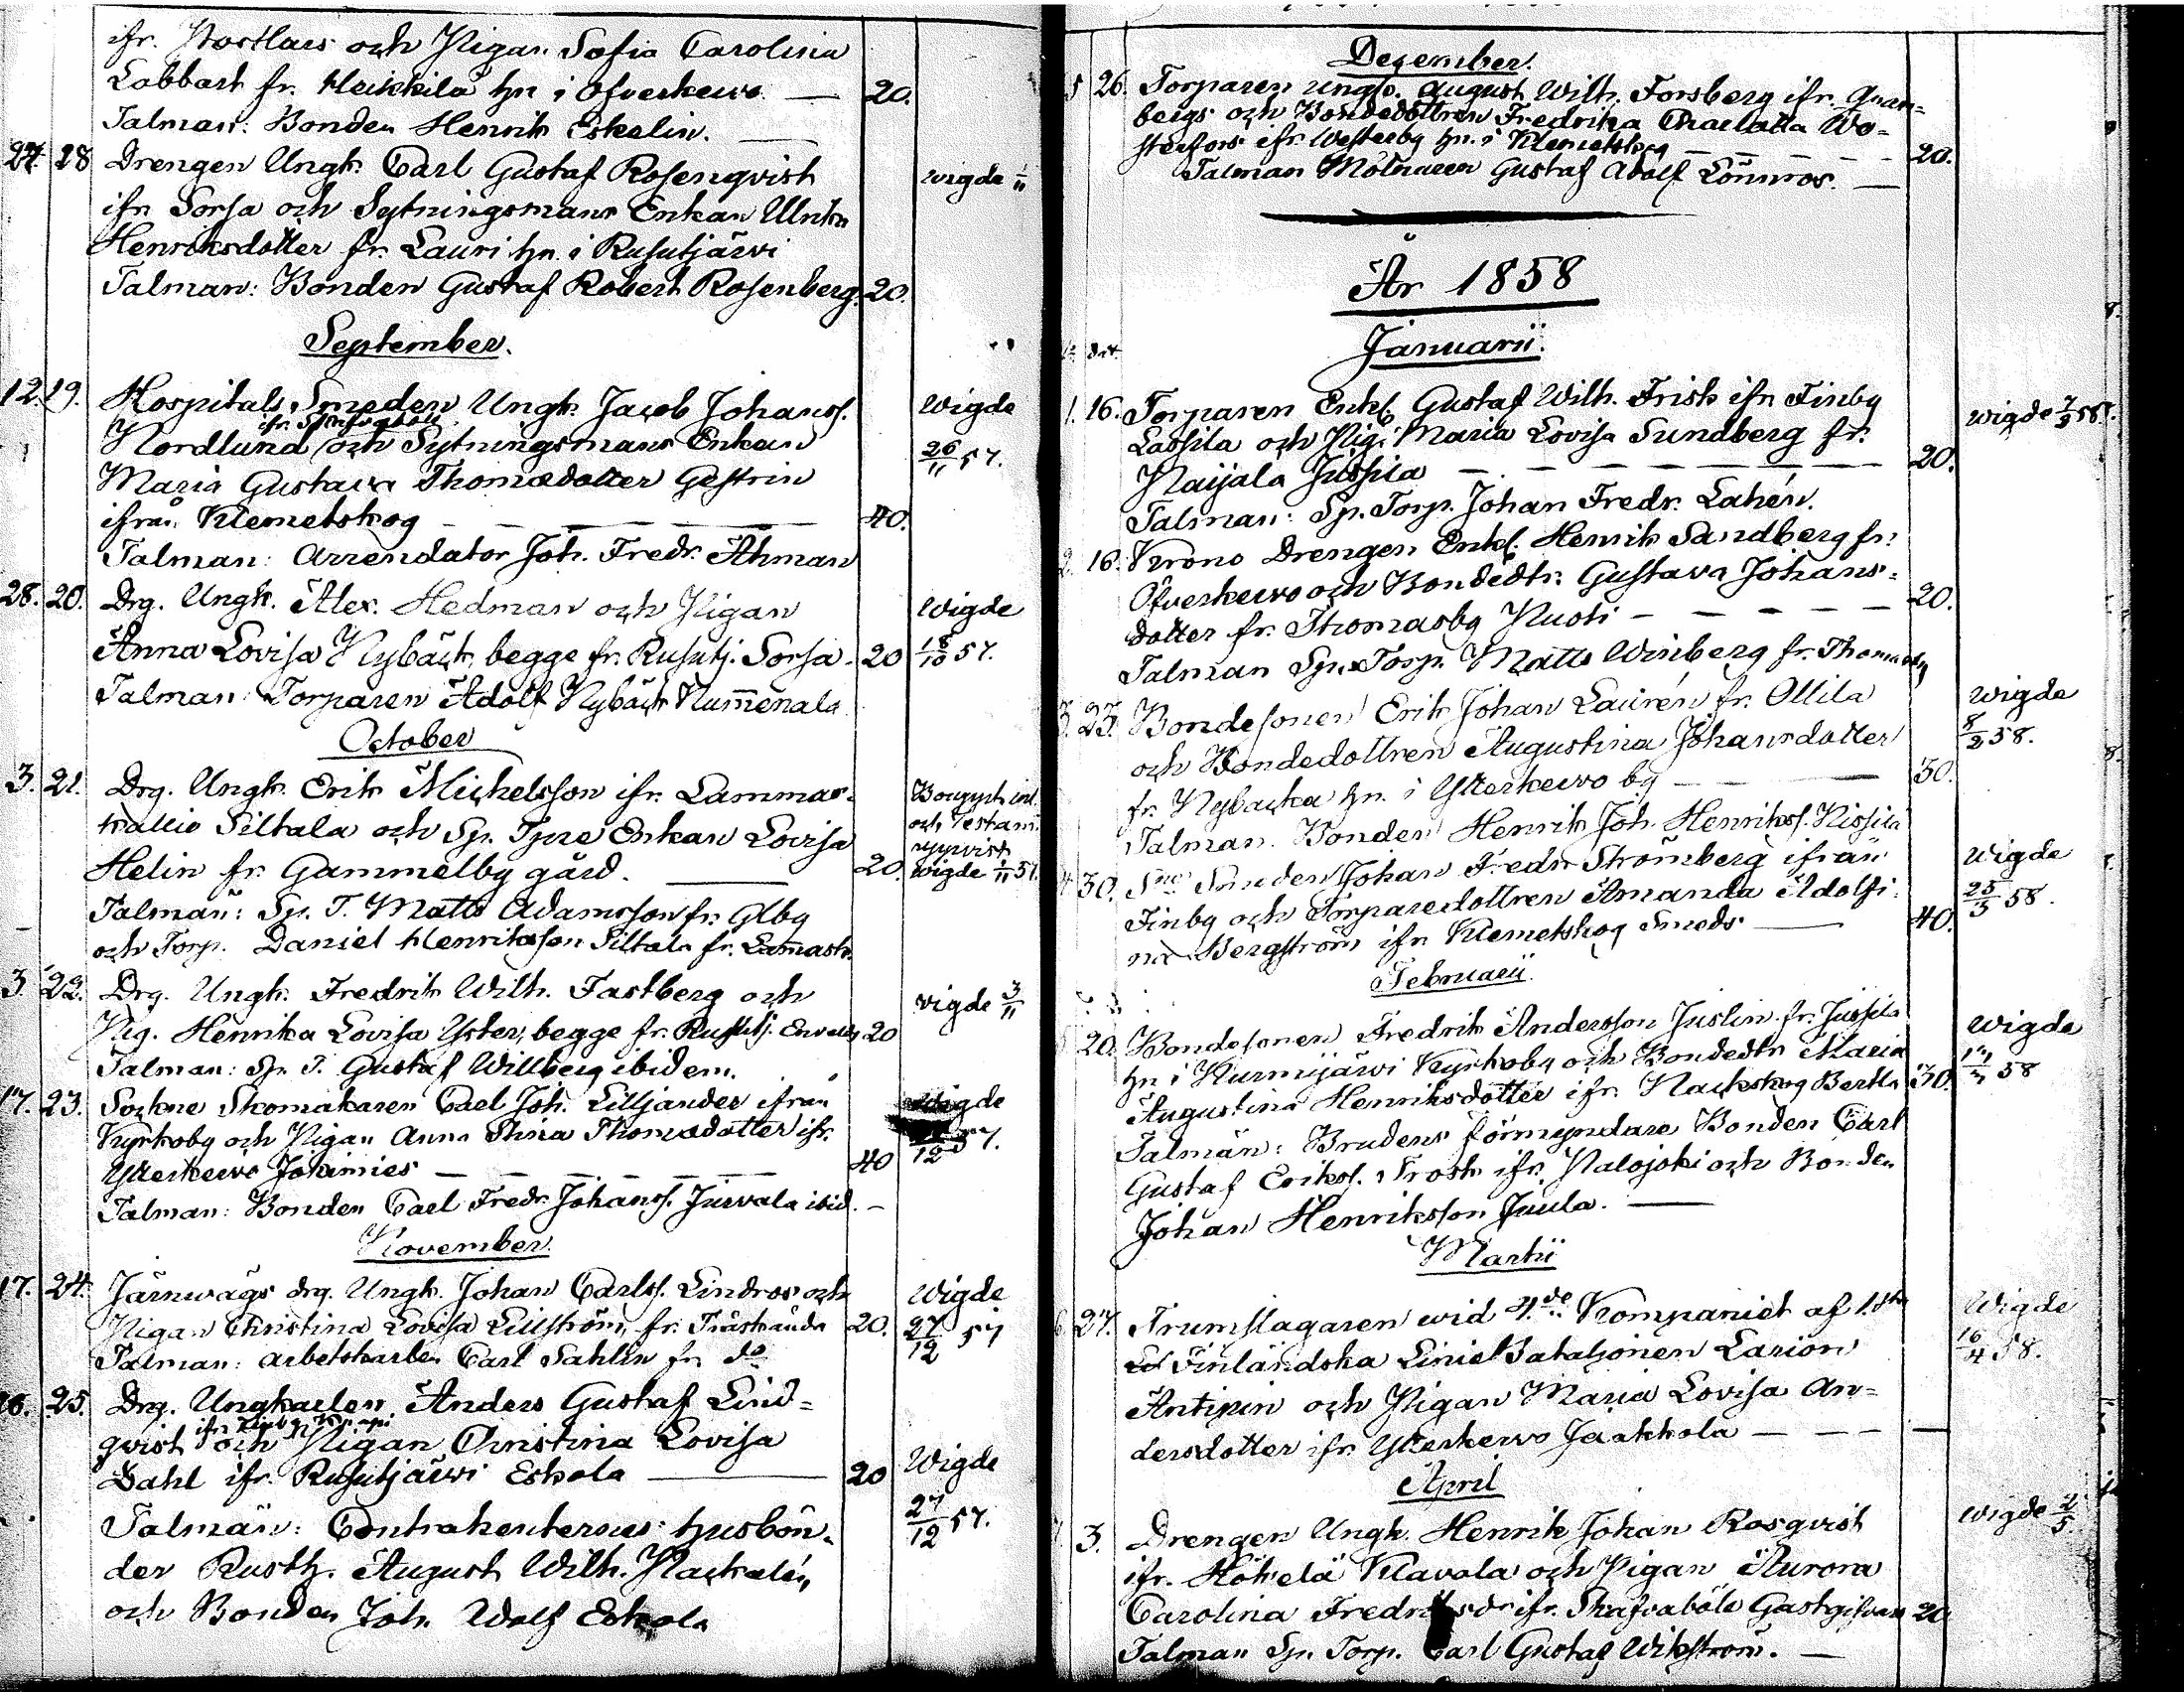 ifr. Nortlars och Pigan Sofia Carolina
Labbart fr. Heikkilä hn i Ofverkervo. — 20.
Talman: Bonden Henrik Eskelin.
27. 28 Drengen Ungk. Carl Gustaf Rosenqvist wigde 1/11
ifr. Sorsa och Sytningsmans Enkan Ulrika
Henriksdotter fr. Lauri hn. i Rusutjärwi
Talman: Bonden Gustaf Robert Rosenberg. 20.
September.
12. 19. Hospitals Smeden Ungk. Jacob Johanss. Wigde
Nordlund och Sytningsmans Enkan 26/11 57.
Maria Gustava Thomædotter Gestrin
ifrån Klemetskog — — — — — 40.
Talman: Arrendator Joh. Fredr. Åhman
28. 20. Drg. Ungk. Alex. Hedman och Pigan Wigde
Anna Lovisa Nybäck, begge fr. Rusutj. Sorsa. 20 18/10 57.
Talman: Torparen Adolf Nybäck Num̄enala
October
3. 21. Drg. Ungk. Erik Michelsson ifr. Lammas-
kallio Siltala och Sp. Tjre Enkan Lovisa och Testam.
Helin fr. Gammelby gård. — 20. wigde 1/11 57.
Talmän: Sp. T. Matts Adamsson fr. Glby
och Torp. Daniel Henriksson Siltala fr. Lam̄ask.
3. 22. Drg. Ungk. Fredrik Wilh. Fastberg och wigde 3/11
Pig. Henrika Lovisa Yster, begge fr. Rusutj. 20
Talman: Sp. T. Gustaf Willberg ibidem.
17. 23. Sockne Skomakaren Carl Joh. Lilljander ifrån Wigde
Kyrkoby och Pigan Anna Stina Thomædotter ifr. 12 57.
Ytterkervo Johimies — — — — 40
Talman: Bonden Carl Fredr. Johanss. Juvala ibid. —
November.
17. 24. Järnwägs drg. Ungk. Johan Carlss. Lindros och Wigde
Pigan Christina Lovisa Lillström, fr. Träskända 20. 27/12 57
Talman: Arbetskarlen Carl Sahlin fr. do
16. 25. Drg. Ungkarlen Anders Gustaf Lind-
qvist och Pigan Christina Lovisa
Dahl ifr. Rusutjärwi Eskola — 20 Wigde
Talmän: Contrahenternes husbön- 27/12 57.
der Rusth. August Wilh. Nackalén
och Bonden Joh. Adolf Eskola
December.
5 26. Torparen Ungk. August Wilh. Forsberg ifr. Gran-
bergs och Bondedottren Fredrika Charlotta Wo-
sterfors ifr. Westerby hn. i Klemetskog — — — — 20.
Talman Mölnaren Gustaf Adolf Lönnros. —
År 1858
Januarii.
1. 16. Torparen Enkl. Gustaf Wilh. Frisk ifr. Finby wigde 7/3 58.
Lassila och Pig. Maria Lovisa Sundberg fr.
Paijala Jussila — — — — — — 20.
Talman: Sp. Torp. Johan Fredr. Lahén.
2. 16. Krono Drengen Enkl. Henrik Sandberg fr.
Ofverkervo och Bondedtr. Gustava Johans-
dotter fr. Thomasby Nuoti — — — — — 20.
Talman Sp. Torp. Matts Winberg fr. Thomasby
3. 23. Bondesonen Erik Johan Laurén fr. Ollila wigde
och Bondedottren Augustina Johansdotter 8/2 58.
fr. Nybacka hn. i Ytterkervo by — — 30.
Talman. Bonden Henrik Joh. Henrikss.
4. 30. Sne Smeden Johan Fredr. Strömberg ifrån Wigde
Finby och Torparedottren Amanda Adolfi- 25/3 58.
na Bergström ifr. Klemetskog Smeds — 40.
Februarii.
5. 20. Bondesonen Fredrik Andersson Juslin fr. Jussila Wigde
hn i Nurmijärwi Kyrkoby och Bondedtr Maria 58
Augustina Henriksdotter ifr. Nackskog Bertla 30.
Talmän: Brudens förmyndare Bonden Carl
Gustaf Erikss. Frosk ifr. Palojoki och Bonden
Johan Henriksson Juula. —
Martii
6. 27. Trumslagaren wid 4.de Kompaniet af 1.sta Wigde
Finländska Linie Bataljonen Larion 16/4 58.
Antipin och Pigan Maria Lovisa An-
dersdotter ifr. Ytterkervo Jaakkola — — — —
April
7. 3. Drengen Ungk. Henrik Johan Rosqvist wigde 2/5
ifr. Hökelä Klavala och Pigan Aurora
Carolina Fredriksdr ifr. Skafvaböle Gästgifvars 20
Talman Sp. Torp. Carl Gustaf Wikström. —